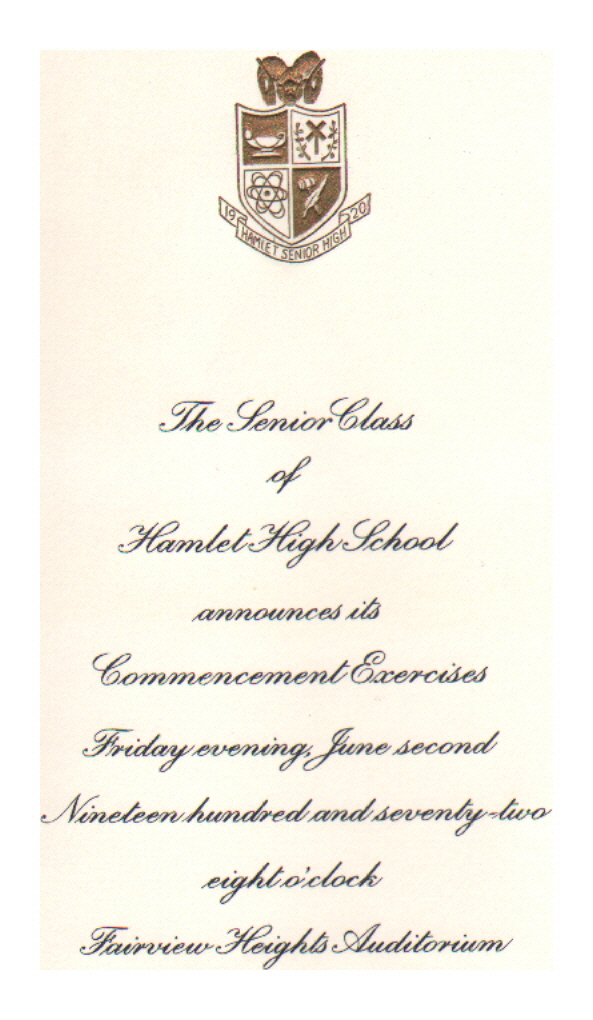 19 20
HAMLET SENIOR HIGH
The Senior Class
of
Hamlet High School
announces its
Commencement Exercises
Friday evening, June second
Nineteen hundred and seventy-two
eight o'clock
Fairview Heights Auditorium